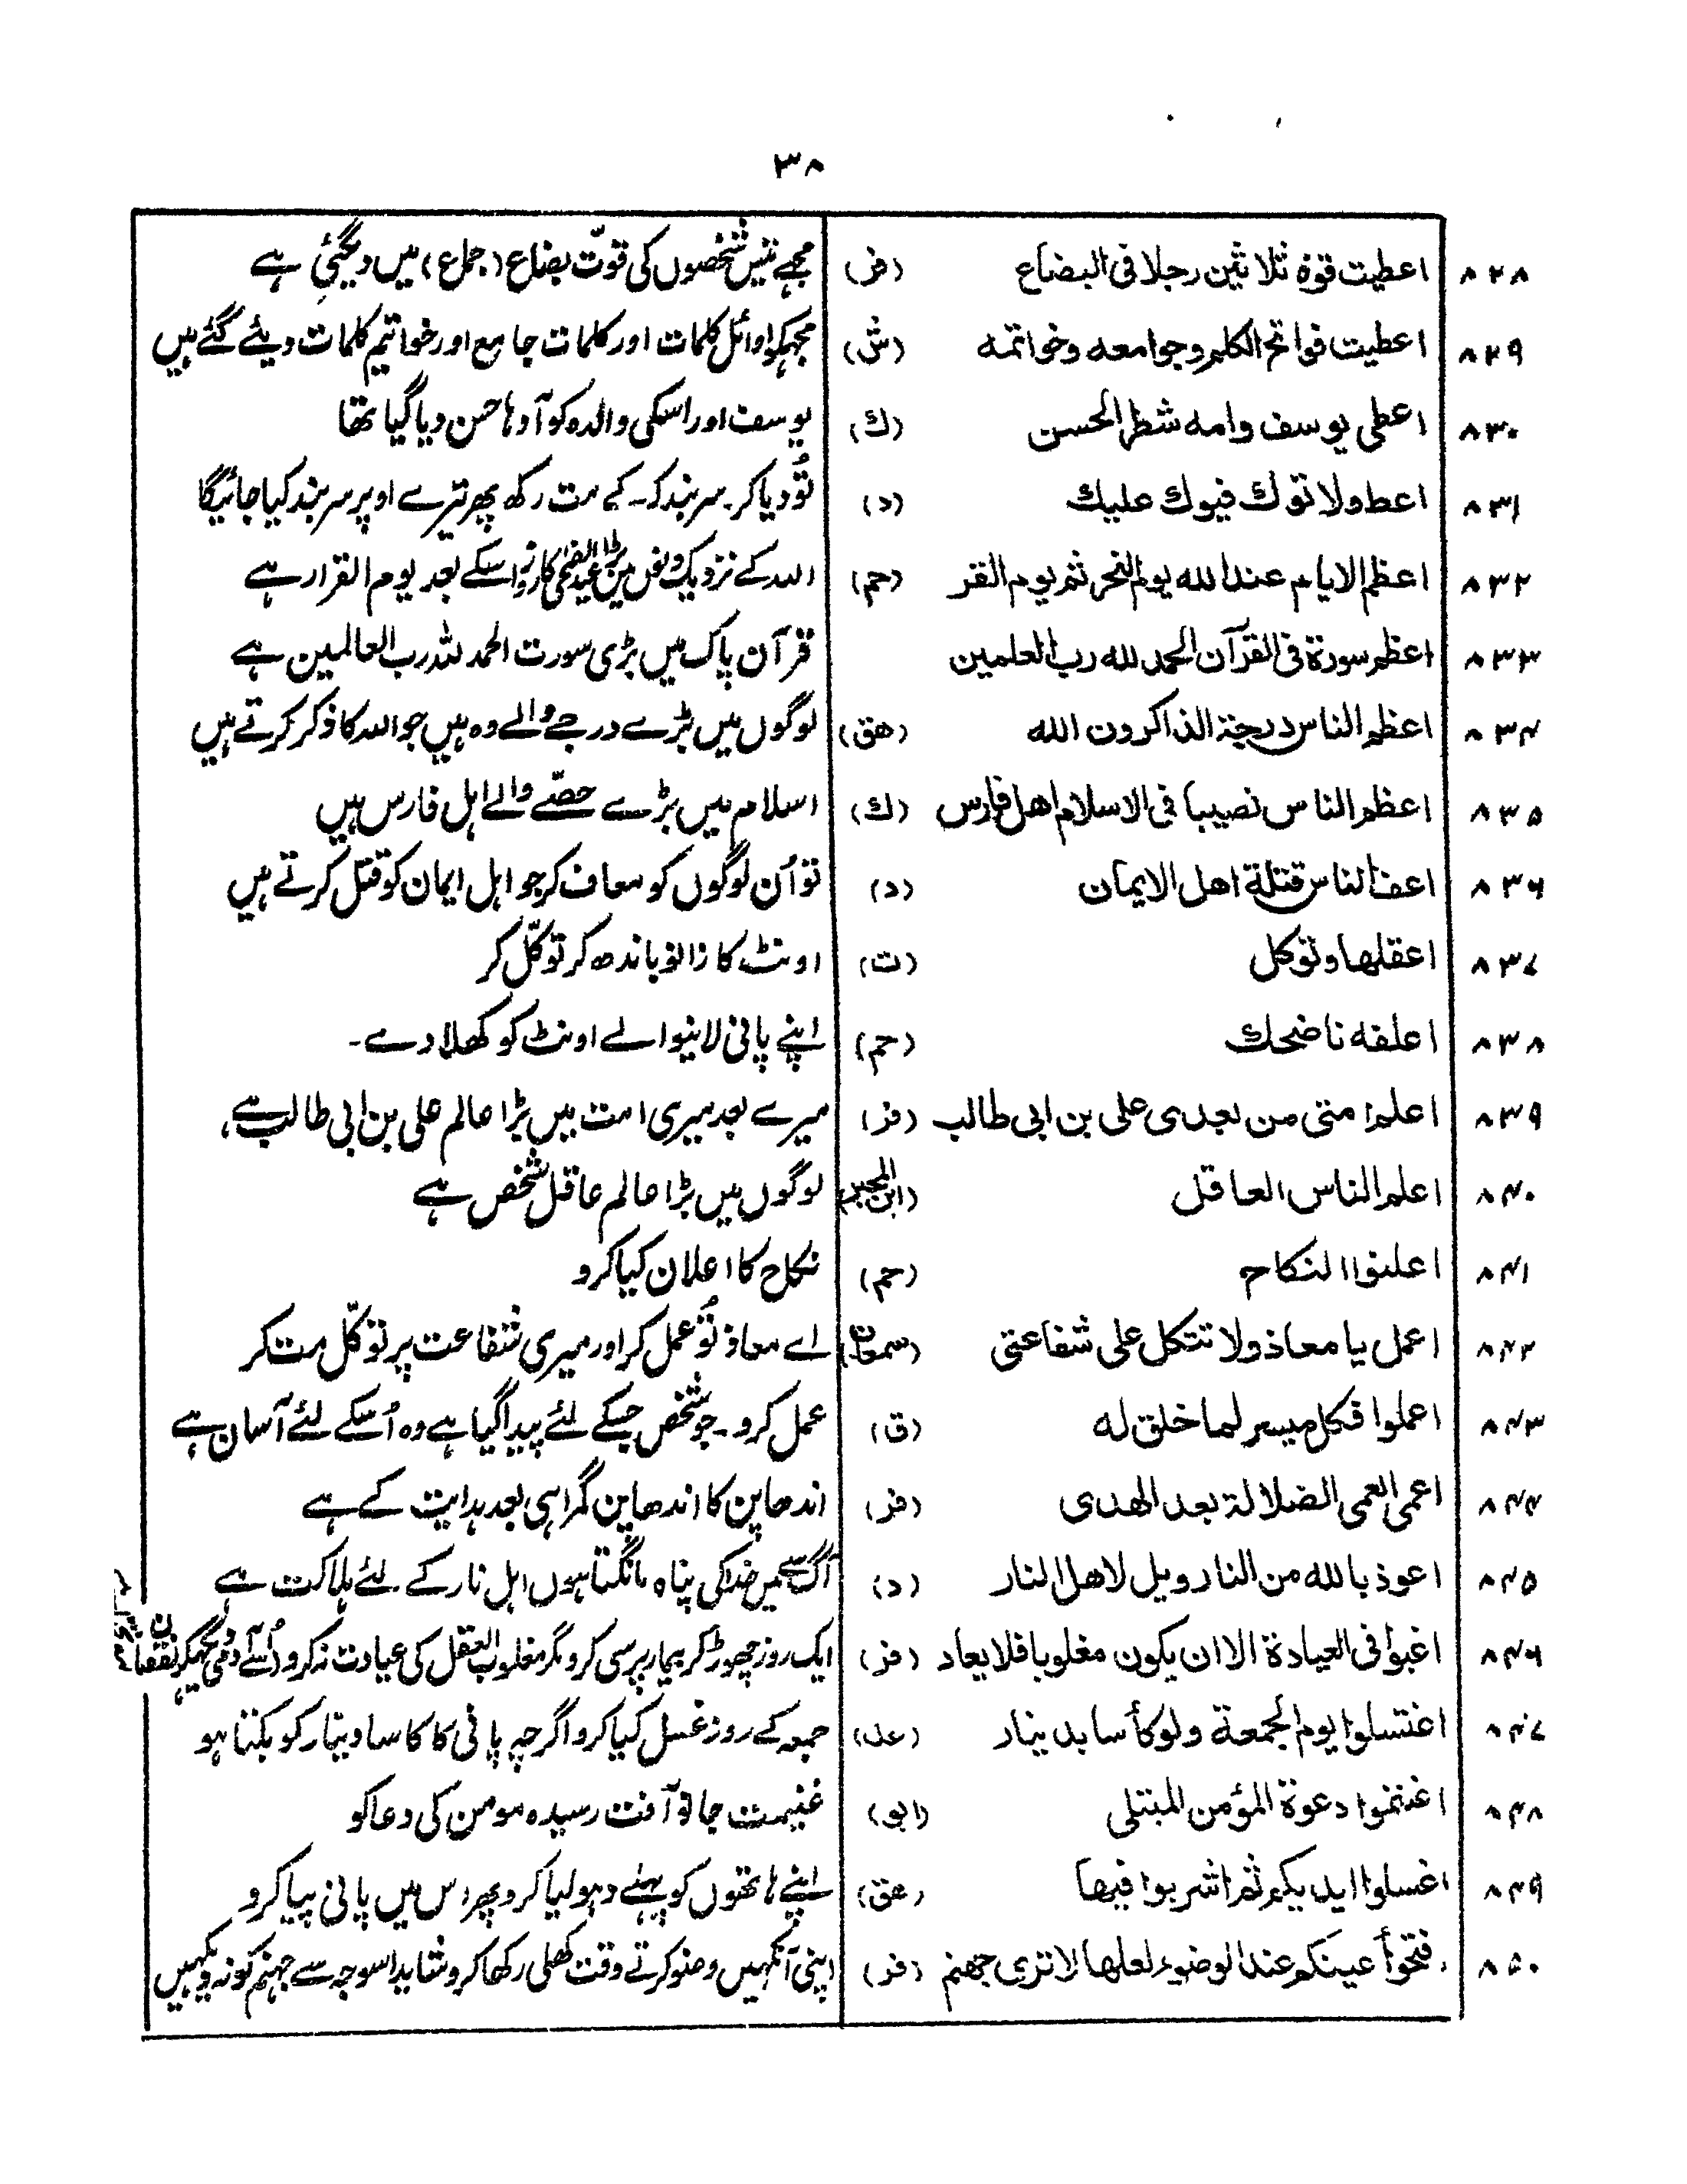 ۳۸
۸۲۸ اعطیت قوة ثلاثین رجلا فی البضاع (فر) مجھے تیس شخصوں کی قوّت بضاع (جماع) میں دیگئی ہے
۸۲۹ اعطیت فواتح الکلم وجوامعه وخواتمه (ش) مجہکو اوائل کلمات اور کلمات جامع اور خواتیم کلمات دیئے گئے ہیں
۸۳۰ اعطی یوسف وامه شطر الحسن (ك) یوسف اور اسکی والدہ کو آدہا حسن دیا گیا تھا
۸۳۱ اعط ولا توك فیوك علیك (د) تُو دیا کر۔ سربند کر کے مت رکھ پھر تیرے اوپر سربند کیا جائیگا
۸۳۲ اعظم الایام عند الله یوم النحر ثم یوم القر (حم) اللہ کے نزدیک دنوں میں بڑا عید الضحی کا روز اسکے بعد یوم القرار ہے
۸۳۳ اعظم سورة فی القرآن الحمد لله رب العلمین قرآن پاک میں بڑی سورت الحمد للہ رب العالمین ہے
۸۳۴ اعظم الناس درجة الذاکرون الله (هق) لوگوں میں بڑے درجے والے وہ ہیں جو اللہ کا ذکر کرتے ہیں
۸۳۵ اعظم الناس نصیبا فی الاسلام اهل فارس (ك) اسلام میں بڑے حصّے والے اہل فارس ہیں
۸۳۶ اعف الناس قتلة اهل الایمان (د) تو اُن لوگوں کو معاف کر جو اہل ایمان کو قتل کرتے ہیں
۸۳۷ اعقلها وتوکل (ت) اونٹ کا زانو باندھ کر توکّل کر
۸۳۸ اعلفه ناضحك (حم) اپنے پانی لانیوالے اونٹ کو کھلا دے۔
۸۳۹ اعلم امتی من بعدی علی بن ابی طالب (فر) میرے بعد میری امت میں بڑا عالم علی بن ابی طالب ہے
۸۴۰ اعلم الناس العاقل (ابن المجبر) لوگوں میں بڑا عالم عاقل شخص ہے
۸۴۱ اعلنوا النکاح (حم) نکاح کا اعلان کیا کرو
۸۴۲ اعمل یا معاذ ولا تتکل علی شفاعتی (سمعان) اے معاذ تُو عمل کر اور میری شفاعت پر توکّل مت کر
۸۴۳ اعملوا فکل میسر لما خلق له (ق) عمل کرو۔ جو شخص جسکے لئے پیدا گیا ہے وہ اُسکے لئے آسان ہے
۸۴۴ اعمی العمی الضلالة بعد الهدی (فر) اندھاپن کا اندھاپن گمراہی بعد ہدایت کے ہے
۸۴۵ اعوذ بالله من النار ویل لاهل النار (د) آگ سے میں خدا کی پناہ مانگتا ہوں اہل نار کے لئے ہلاکت ہے
۸۴۶ اغبوا فی العیادة الا ان یکون مغلوبا فلا یعاد (فر) ایک روز چھوڑ کر بیمار پرسی کرو مگر مغلوب العقل کی عیادت نہ کرو
۸۴۷ اغتسلوا یوم الجمعة ولو کأسا بدینار (عد) جمعہ کے روز غسل کیا کرو اگرچہ پانی کا کاسا دینار کو بکتا ہو
۸۴۸ اغتنموا دعوة المؤمن المبتلی (ابو) غنیمت جانو آفت رسیدہ مومن کی دعا کو
۸۴۹ اغسلوا ایدیکم ثم اشربوا فیها (هق) اپنے ہاتھوں کو پہلے دہو لیا کرو پھر اس میں پانی پیا کرو
۸۵۰ فتحوا أعینکم عند الوضوء لعلها لا تری جهنم (فر) اپنی آنکہیں وضو کرتے وقت کھلی رکھا کرو شاید اسوجہ سے جہنم کو نہ دیکہیں